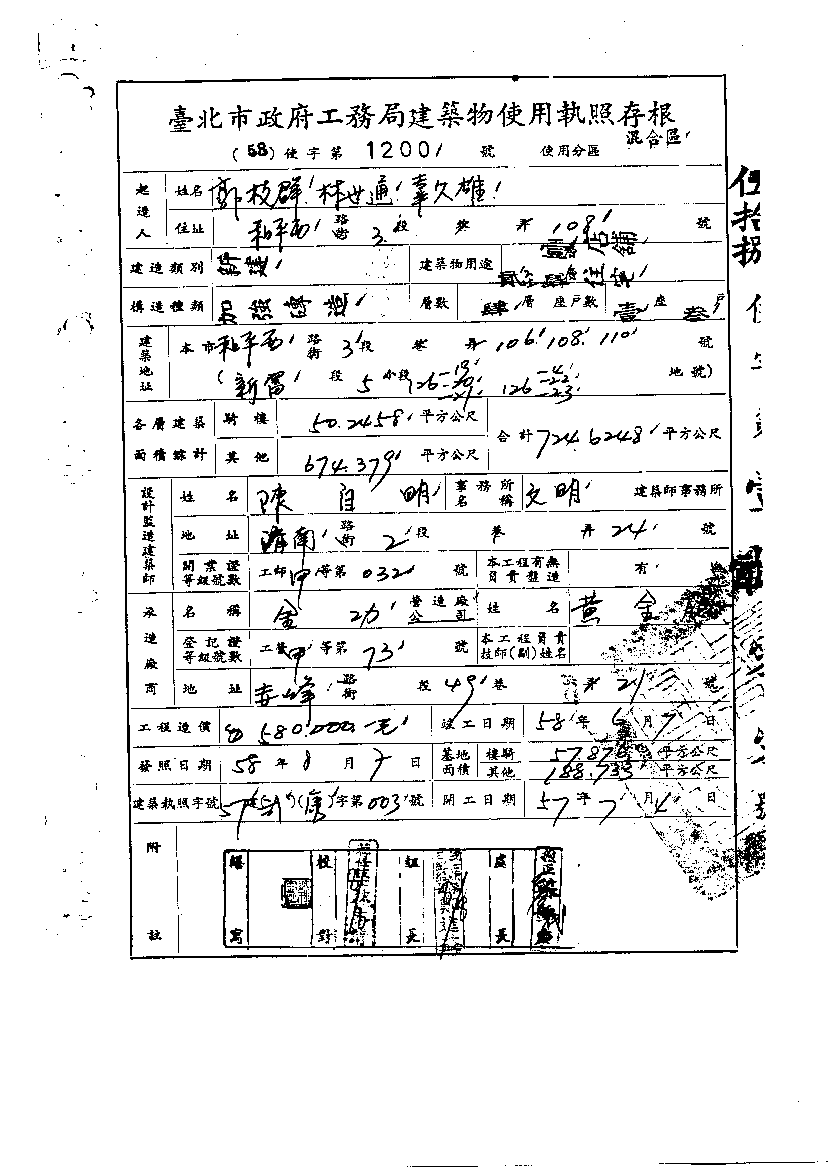 臺北市政府工務局建築物使用執照存根
(58)使字第 1200 號 使用分區 混合區
起造人 姓名 鄭枝群 林世通 辜久雄
住址 和平西 路街 3 段 巷 弄 108 號
建造類別 新建 建築物用途 壹層店舖 貳至肆層住宅
構造種類 加強磚造 層數 肆層 座戶數 壹座 叁戶
建築地址 本市 和平西 路街 3 段 巷 弄 106.108.110 號
(新富 段 5 小段 126-19 -20 -21 126-4 -22 -23 地號)
各層建築面積總計 騎樓 50.2458 平方公尺 合計 724.6248 平方公尺
其他 674.379 平方公尺
設計監造建築師 姓名 陳自明 事務所名稱 文明 建築師事務所
地址 濟南 路街 2 段 巷 弄 24 號
開業證等級號數 工師 甲 等第 032 號 本工程有無負責監造 有
承造廠商 名稱 金功 營造廠公司 姓名 黃金
登記證等級號數 工營 甲 等第 73 號 本工程負責技師(副)姓名
地址 赤峰 路街 段 49 巷 弄 21 號
工程造價 580,000.元 竣工日期 58 年 6 月 7 日
發照日期 58 年 8 月 7 日 基地面積 樓騎 平方公尺
其他 188.733 平方公尺
建築執照字號 57 建 (康)字第 003 號 開工日期 57 年 7 月 4 日
附註
繕寫 校對 組長 處長
伍拾捌